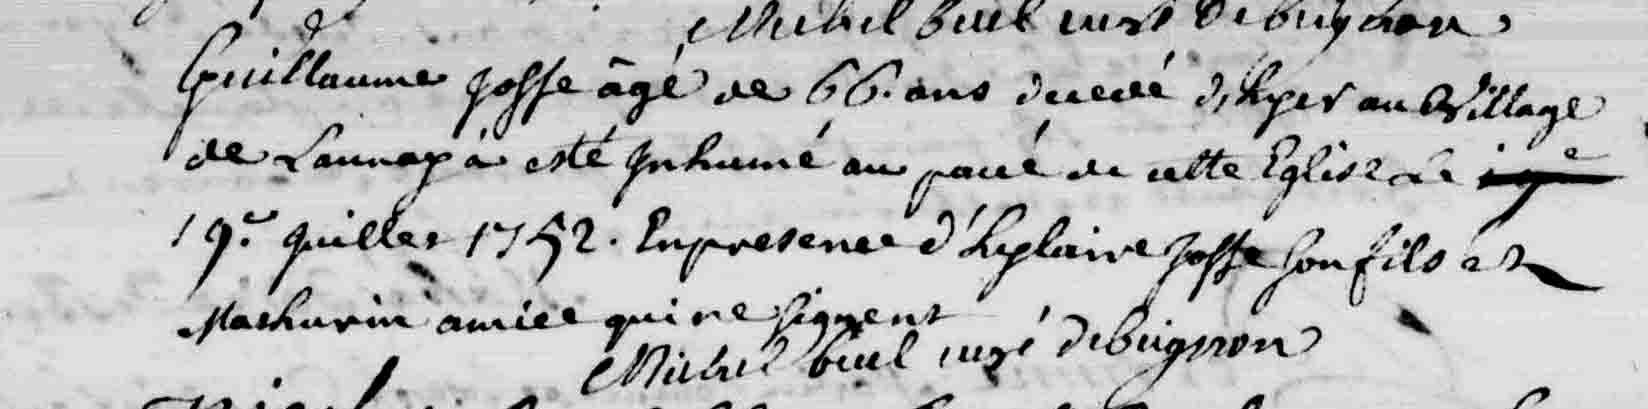 Michel buel curé de buignon
Guillaume josse âgé de 66. ans decedé d'hyer au Village
de Launay a esté jnhumé au pavé de cette Eglise Le
19.e juillet 1752. En presence d'hylaire josse son fils et
Mathurin amice qui ne signent
Michel buel curé de buignon